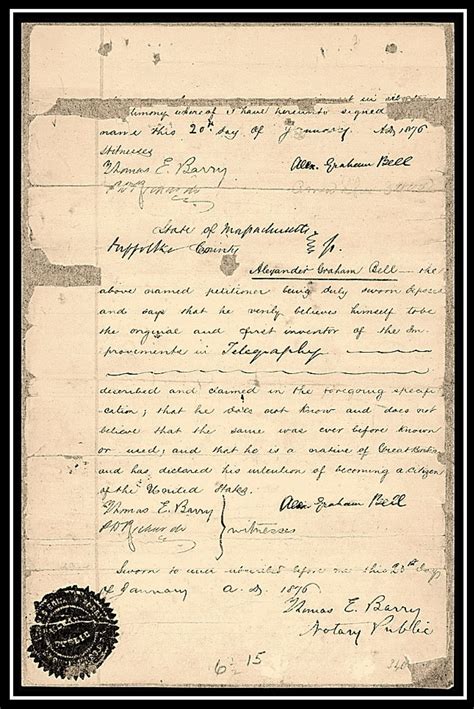 testimony whereof I have hereunto signed
name this 20th day of January A.D. 1876
Witnesses
Thomas E. Barry
Alex. Graham Bell
P. D. Richards
State of Massachusetts
Suffolk County ss.
Alexander Graham Bell the
above named petitioner being duly sworn deposes
and says that he verily believes himself to be
the original and first inventor of the Im-
provements in Telegraphy
described and claimed in the foregoing specifi-
cation; that he does not know and does not
believe that the same was ever before known
or used; and that he is a native of Great Britain
and has declared his intention of becoming a citizen
of the United States.
Thomas E. Barry
Alex. Graham Bell
P. D. Richards } witnesses
Sworn to and subscribed before me this 20th day
of January A.D. 1876
Thomas E. Barry
Notary Public
PUBLIC
15